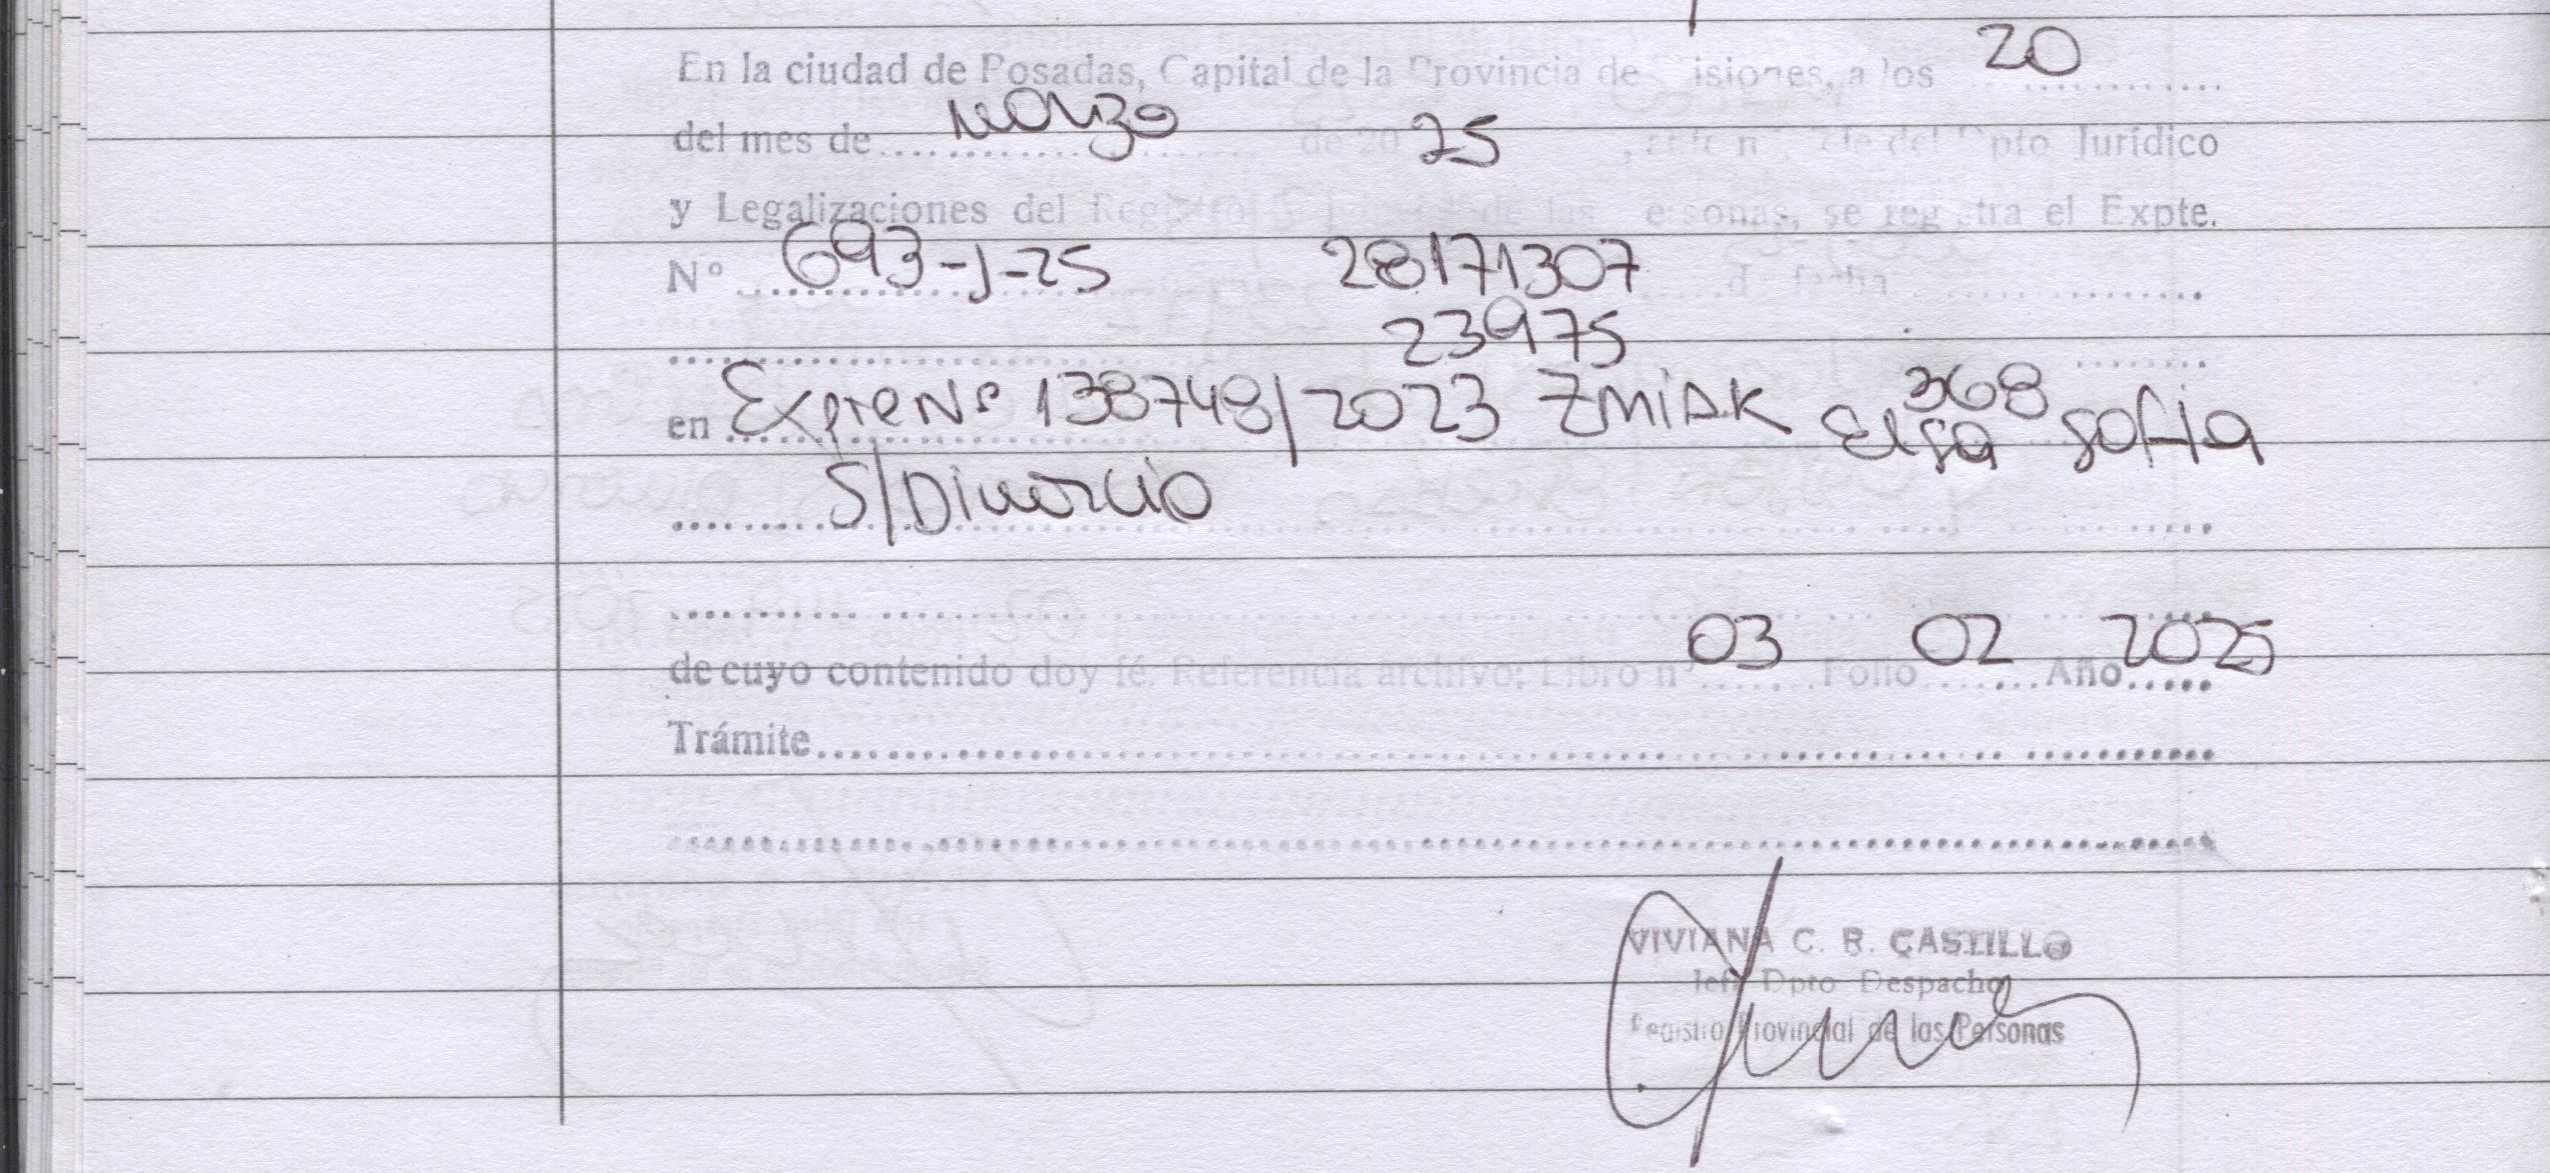 En la ciudad de Posadas, Capital de la Provincia de Misiones, a los 20
del mes de marzo de 20 25, ante mí Jefe del Dpto Jurídico
y Legalizaciones del Registro de las Personas, se registra el Expte.
Nº 693-J-25 28171307 fecha
23975
368
en Expte Nº 138748/2023 ZMiAK Elsa Sofia
S/Divorcio
de cuyo contenido doy fé. Referencia archivo: Libro nº 03 Folio 02 Año 2025
Trámite
VIVIANA C. R. CASTILLO
Jefe Dpto Despacho
Registro Provincial de las Personas